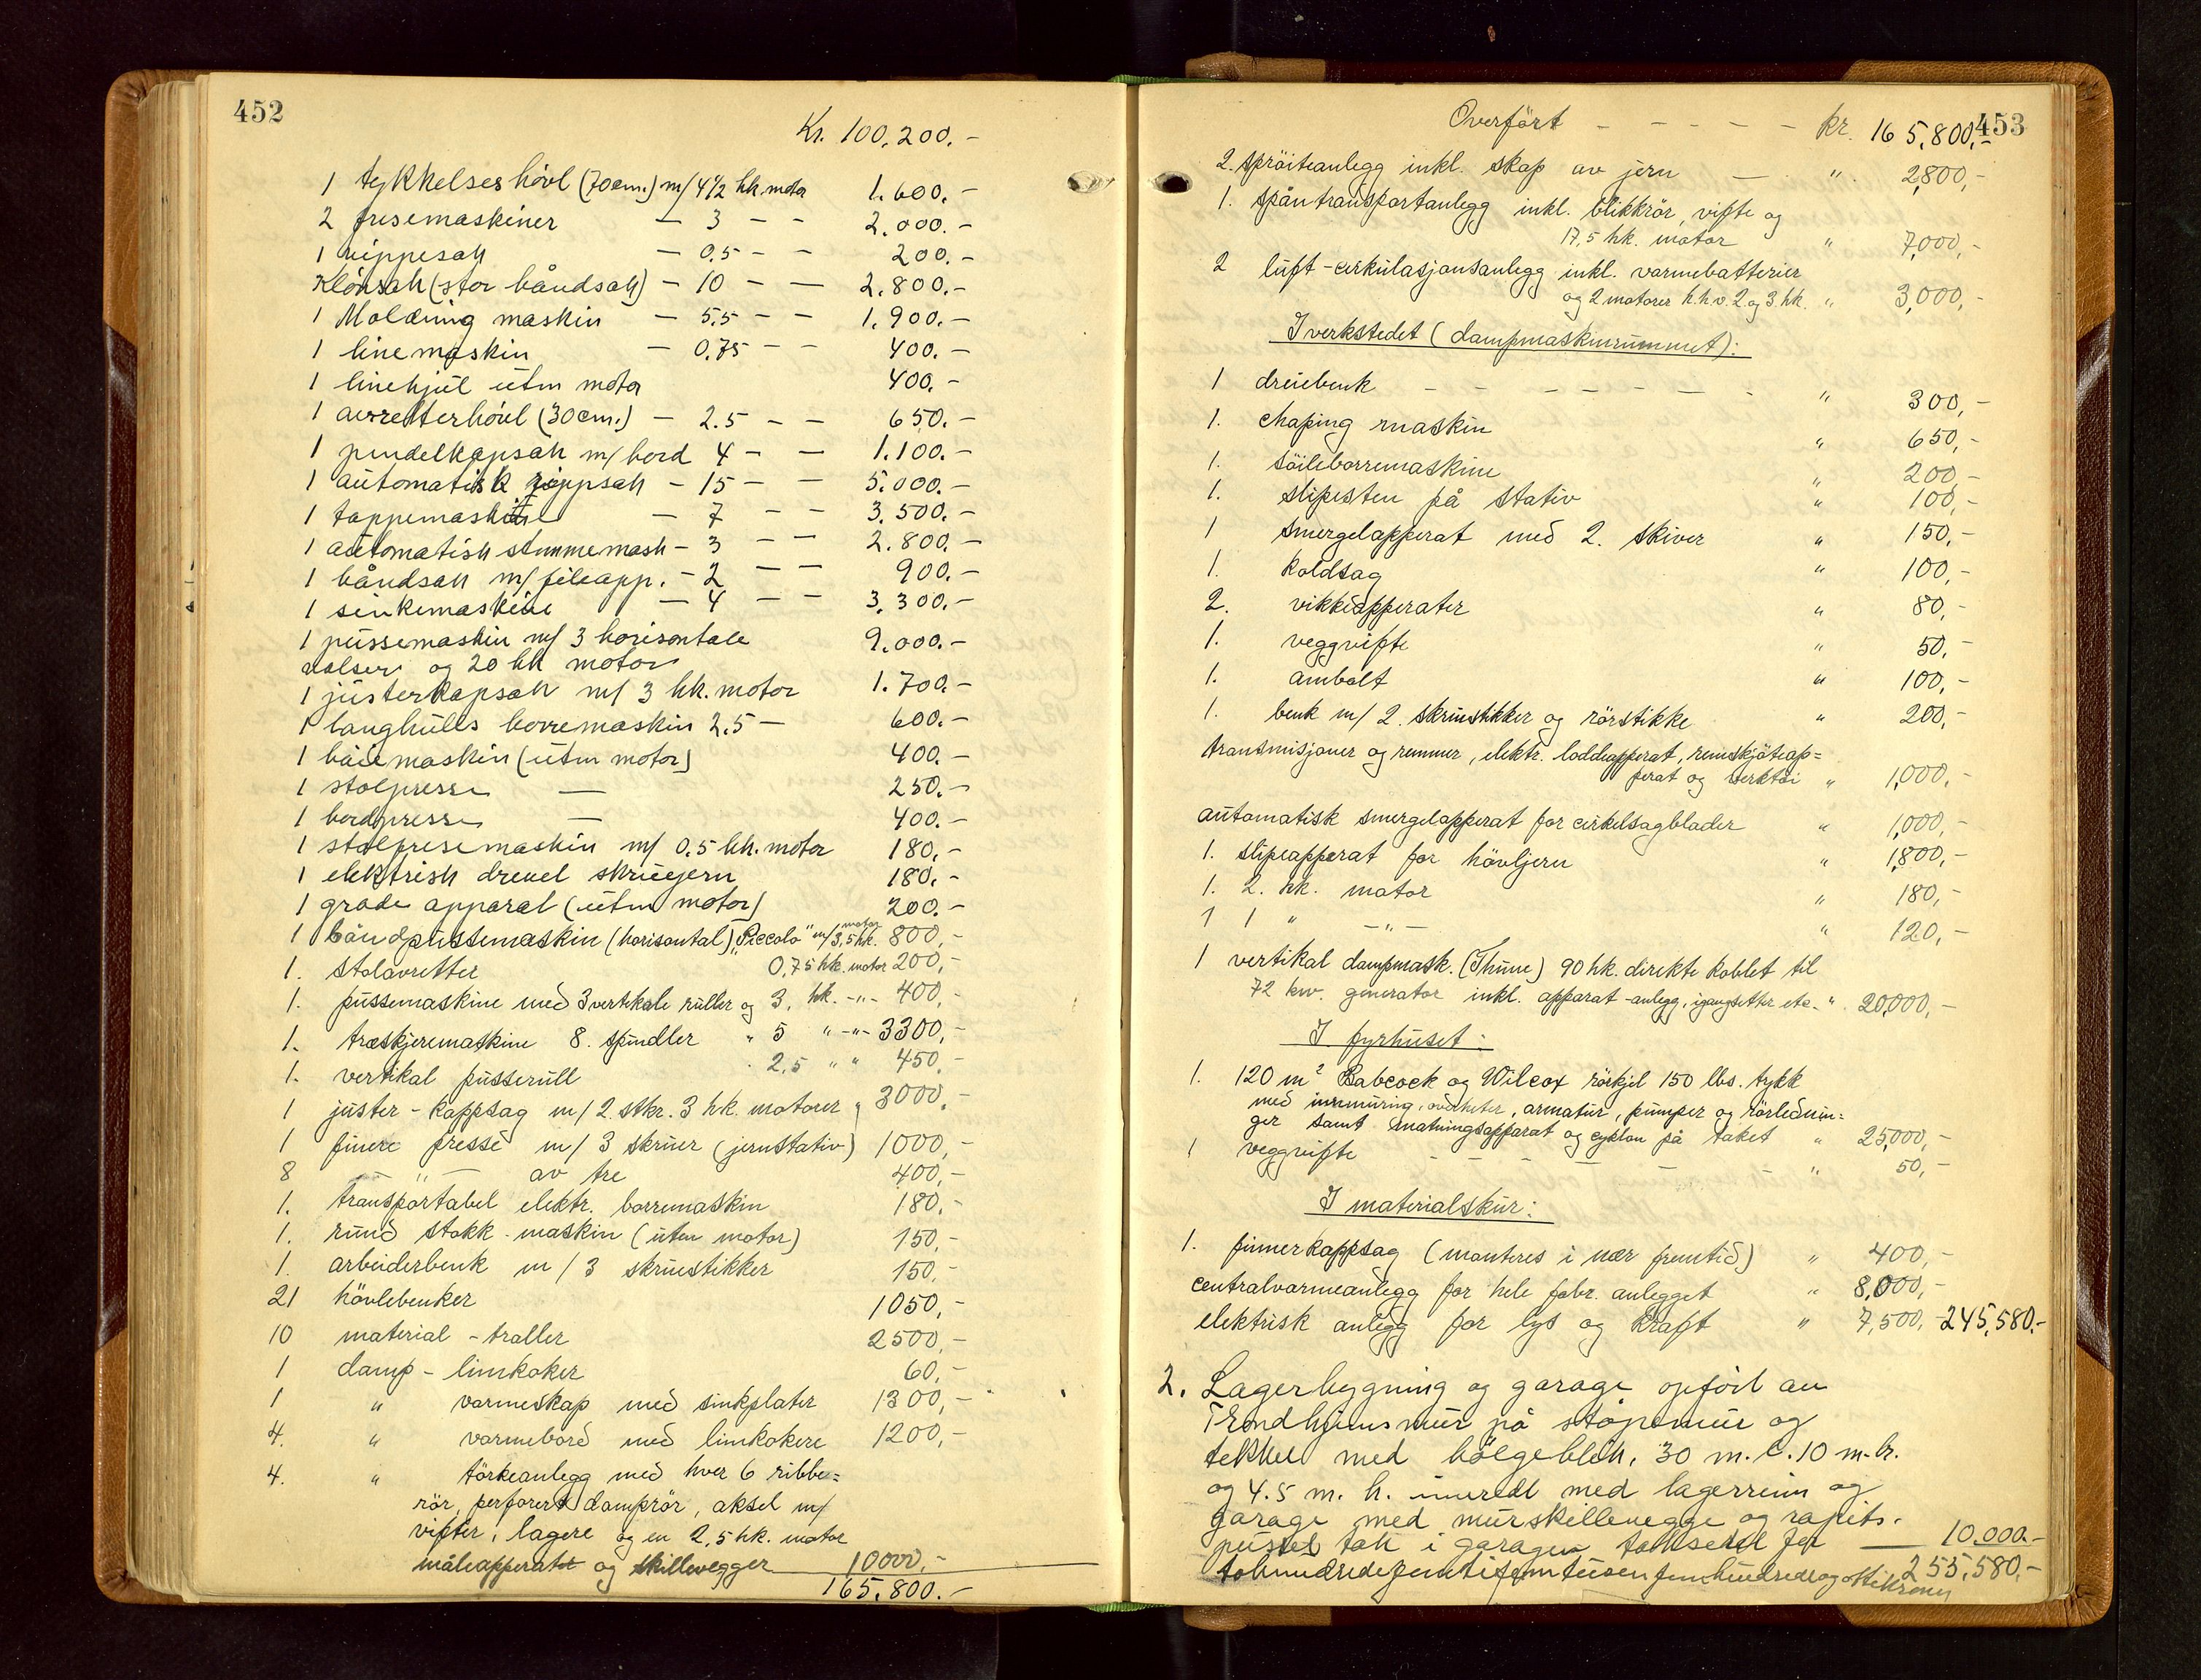 452
Kr. 100.200.-
1 tykkelseshövl (70cm.) m/ 4½ hk. motor 1.600.-
2 fresemaskiner - 3 - - 2.000.-
1 vippesag - 0,5 - - 200.-
Klövsag (stor båndsag) - 10 - - 2.800.-
1 Molding maskin - 5,5 - - 1.900.-
1 limemaskin - 0,75 - - 400.-
1 limehjul uten motor 400.-
1 avretterhövl (30cm.) - 2.5 - - 650.-
1 pendelkapsag m/ bord 4 - - 1.100.-
1 automatisk rippsag - 15 - - 5.000.-
1 tappemaskin - 7 - - 3.500.-
1 automatisk stemmemask - 3 - - 2.800.-
1 båndsag m/ fileapp. - 2 - - 900.-
1 sinkemaskine - 4 - - 3.300.-
1 pussemaskin m/ 3 horisontale 9.000.-
valser og 20 hk motor
1 justerkapsag m/ 3 hk. motor 1.700.-
1 langhulls borremaskin 2.5 - 600.-
1 böiemaskin (uten motor) 400.-
1 stolpresse - 250.-
1 bordpresse - 400.-
1 stolpresemaskin m/ 0,5 hk. motor 180.-
1 elektrisk drevet skrujern 180.-
1 grade apparat (uten motor) 200.-
1 båndpussemaskin (horisontal) "Piccolo" m/ 3,5 hk. motor 800,-
1. stolavretter 0,75 hk. motor 200,-
1. pussemaskine med 3 vertikale ruller og 3. hk. -"- 400,-
1. træskjeremaskine 8. spindler " 5 " -"- 3300,-
1. vertikal pusserull 2,5 " " 450,-
1 juster-kappsag m/ 2. stkr. 3 hk. motorer " 3000,-
1 finere presse m/ 3 skruer (jernstativ) 1000,-
8 - " - av tre 400,-
1. transportabel elektr. borremaskin 180,-
1. rund stokk-maskin (uten motor) 150,-
1. arbeiderbenk m/ 3 skruestikker 150,-
21 hövlebenker 1050,-
10 material-traller 2500,-
1 damp-limkoker 60,-
1 " varmeskap med sinkplater 1300,-
4. " varmebord med limkokere 1200,-
4. " törkeanlegg med hver 6 ribbe=
rör, perforert damprör, aksel m/
vifter, lagere og en 2,5 hk. motor
måleapparater og skillevegger 10000,-
165.800.-
453
Overfört - - - - - kr. 165,800,-
2. spröiteanlegg inkl. skap av jern - " 2,800,-
1. spåntransportanlegg inkl. blikkrör, vifte og
17,5 hk. motor " 7,000,-
2 luft-cirkulasjonsanlegg inkl. varmebatterier
og 2 motorer h.h.v. 2 og 3 hk. " 3,000,-
I verkstedet (dampmaskinrummet):
1 dreiebenk - - - - - - - " 300,-
1. chaping maskin " 650,-
1. söileborremaskine " 200,-
1. slipesten på stativ " 100,-
1 smergelapparat med 2. skiver " 150,-
1. koldsag " 100,-
2. vikkeapparater " 80,-
1. veggvifte " 50,-
1. ambolt " 100,-
1. benk m/ 2. skruestikker og rörstikke " 200,-
transmisjoner og remmer, elektr. loddeapparat, remskjöteap=
perat og verktöi " 1,000,-
automatisk smergelapparat for cirkelsagblader " 1,000,-
1. slipeapparat for hövljern " 1,800,-
1. 2. hk. motor " 180,-
1 1 " -"- " 120,-
1 vertikal dampmask. (Thune) 90 hk. direkte koblet til
72 kw. generator inkl. apparat-anlegg, igangsetter etc. " 20,000,-
I fyrhuset:
1. 120 m² Babcock og Wilcox rörkjel 150 lbs. trykk
med innmuring, overheter, armatur, pumper og rörlednin=
ger samt matningsapparat og cyklon på taket " 25,000,-
1 veggvifte - - - - - - " 50,-
I materialskur:
1. finnerkappsag (monteres i nær fremtid) " 400,-
centralvarmeanlegg for hele fabr. anlegget " 8,000,-
elektrisk anlegg for lys og kraft " 7,500,- 245,580.-
2. Lagerbygning og garage opført av
Trondhjemsmur på støpemur og
tekket med bølgeblik, 30 m. l. 10 m. br.
og 4.5 m. h. innredt med lagerrum og
garage med murskillevegge og rapits-
pusset tak i garagen taksert for - 10.000.-
tohundredefemtifemtusenfemhundredeogottikroner 255,580.-